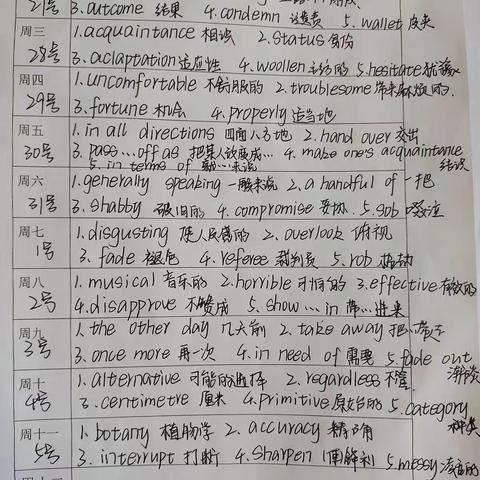 21号
3. outcome 结果 4. condemn 谴责 5. wallet 皮夹
周三
28号
1. acquaintance 相识 2. status 身份
3. aclaptation 适应性 4. woollen 5. hesitate 犹豫
周四
29号
1. uncomfortable 不舒服的 2. troublesome 带来麻烦的.
3. fortune 机会 4. properly 适当地
周五
30号
1. in all directions 四面八方地 2. hand over 交出
3. pass...off as 把某人改变成... 4. make one's acquaintance
结识
5. in terms of 就...来说
周六
31号
1. generally speaking 一般来说 2. a handful of 一把
3. shabby 破旧的 4. compromise 妥协. 5. sob 啜泣
周七
1号
1. disgusting 使人反感的 2. overlook 俯视
3. fade 褪色 4. referee 裁判员 5. rob 抢劫
周八
2号
1. musical 音乐的 2. horrible 可怕的 3. effective 有效的
4. disapprove 不赞成 5. show...in 带...进来
周九
3号
1. the other day 几天前 2. take away 把
3. once more 再一次 4. in need of 需要 5. fade out
周十
4号
1. alternative 可能的选择 2. regardless 不管
3. centimetre 厘米 4. primitive 原始的 5. category
种类
周十一
5号
1. botany 植物学 2. accuracy 精确
3. interrupt 打断 4. sharpen (使)锋利 5. messy 凌乱的